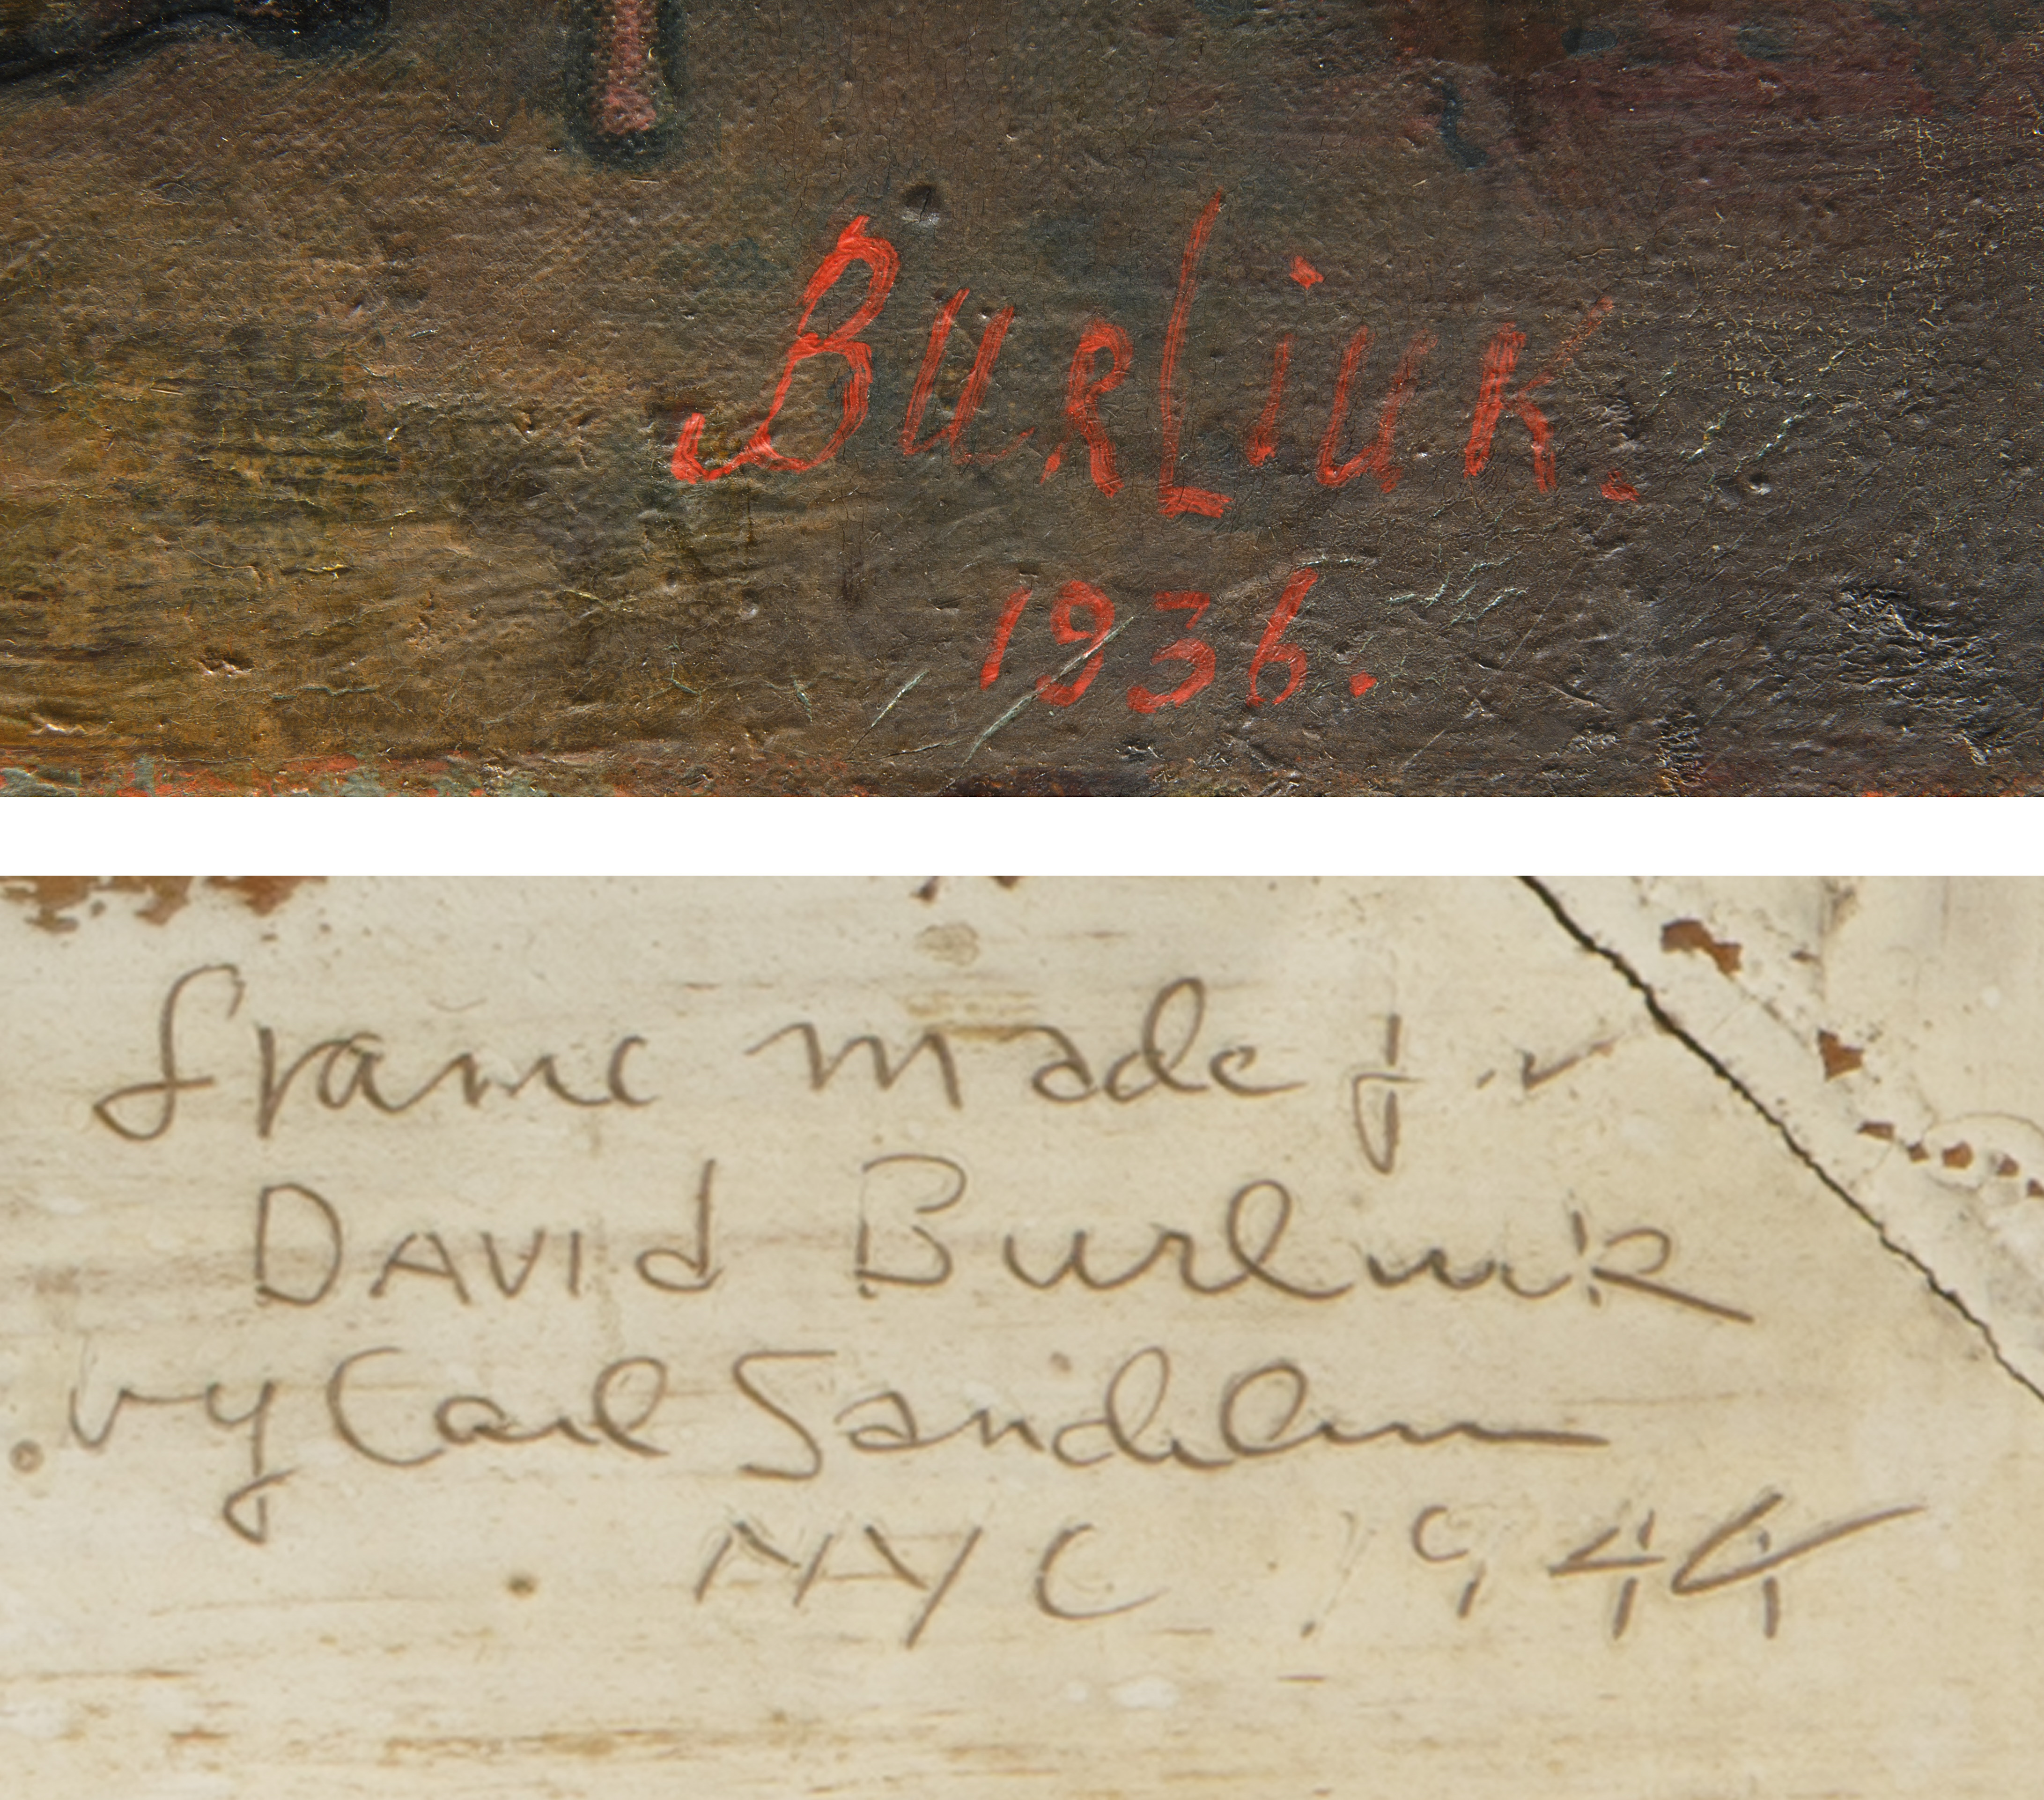 BurLiuk.
1936.
frame made for
DAVId Burliuk
by Carl Sandelin
NYC 1944